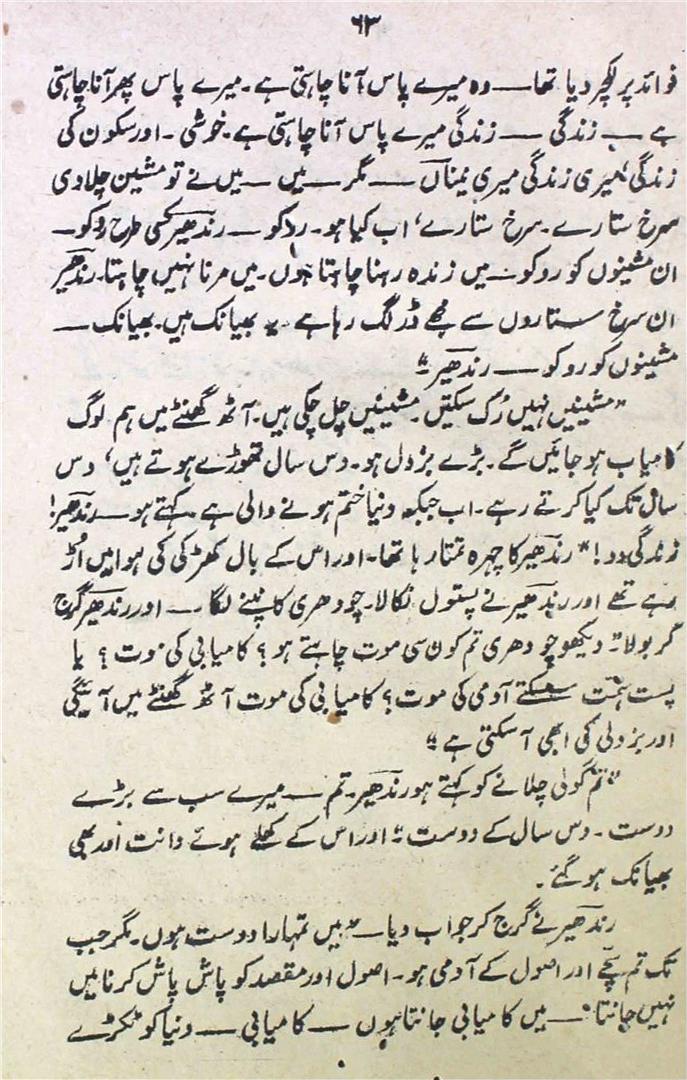 ۶۳
فوائد پر لکچر دیا تھا — وہ میرے پاس آنا چاہتی ہے۔ میرے پاس پھر آنا چاہتی
ہے — زندگی — زندگی میرے پاس آنا چاہتی ہے۔ خوشی۔ اور سکون کی
زندگی، میری زندگی میری نیناں — مگر — میں — میں نے تو مشین چلا دی
سرخ ستارے۔ سرخ ستارے، اب کیا ہو۔ روکو — رندھیر کسی طرح روکو —
ان مشینوں کو روکو — میں زندہ رہنا چاہتا ہوں۔ میں مرنا نہیں چاہتا۔ رندھیر
ان سرخ ستاروں سے مجھے ڈر لگ رہا ہے — بھیانک ہیں۔ بھیانک —
مشینوں کو روکو — رندھیر"
"مشینیں نہیں رُک سکتیں۔ مشینیں چل چکی ہیں۔ آٹھ گھنٹے میں ہم لوگ
کامیاب ہو جائیں گے۔ بڑے بزدل ہو۔ دس سال تھوڑے ہوتے ہیں، دس
سال تک کیا کرتے رہے۔ اب جبکہ دنیا ختم ہونے والی ہے کہتے ہو — رندھیر!
زندگی دو!" رندھیر کا چہرہ تمتا رہا تھا۔ اور اس کے بال کھڑکی کی ہوا میں اُڑ
رہے تھے اور رندھیر نے پستول نکالا۔ چودھری کانپنے لگا — اور رندھیر گرج
کر بولا" دیکھو چودھری تم کون سی موت چاہتے ہو؟ کامیابی کی موت؟ یا
پست ہمّت سسکتے آدمی کی موت؟ کامیابی کی موت آٹھ گھنٹے میں آئیگی
اور بزدلی کی ابھی آ سکتی ہے"
"تم گولی چلانے کو کہتے ہو رندھیر۔ تم — میرے سب سے بڑے
دوست۔ دس سال کے دوست" اور اس کے کھلے ہوئے دانت اور بھی
بھیانک ہو گئے۔
رندھیر نے گرج کر جواب دیا — "میں تمہارا دوست ہوں۔ مگر جب
تک تم سچّے اور اصول کے آدمی ہو۔ اصول اور مقصد کو پاش پاش کرنا میں
نہیں جانتا — میں کامیابی جانتا ہوں — کامیابی — دنیا کو ٹکڑے